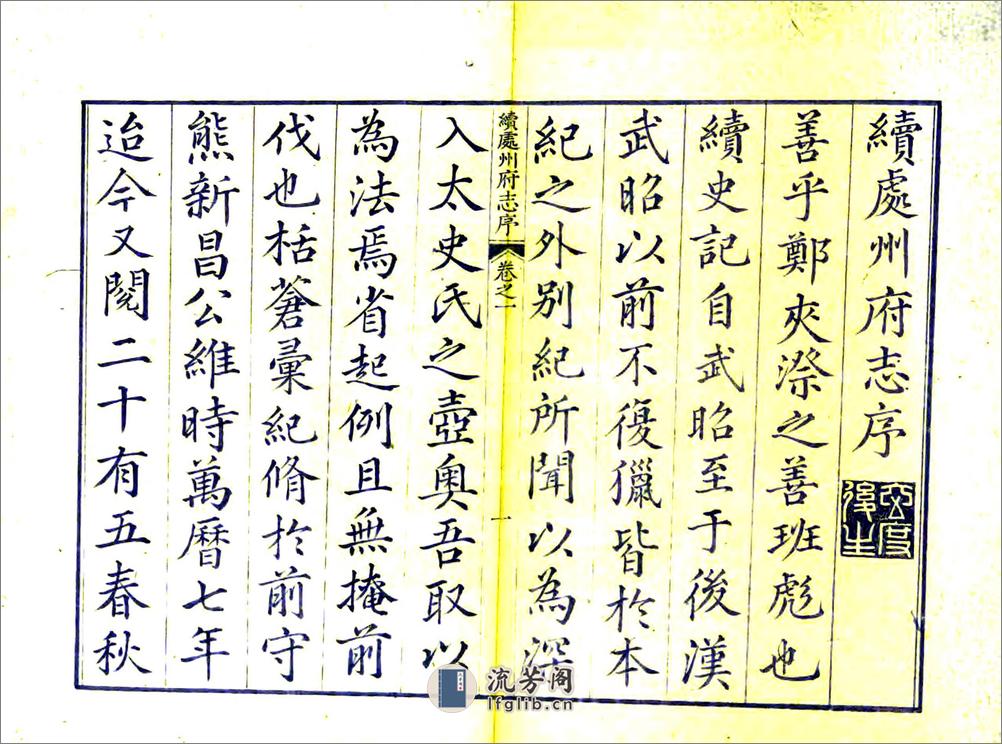 續處州府志序
善乎鄭夾漈之善班彪也
續史記自武昭至于後漢
武昭以前不復獵皆於本
紀之外别紀所聞以為深
續處州府志序 卷之一 一
入太史氏之壼奥吾取以
為法焉省起例且無掩前
伐也栝蒼彙紀脩於前守
熊新昌公維時萬曆七年
迨今又閱二十有五春秋
流芳阁
lfglib.cn